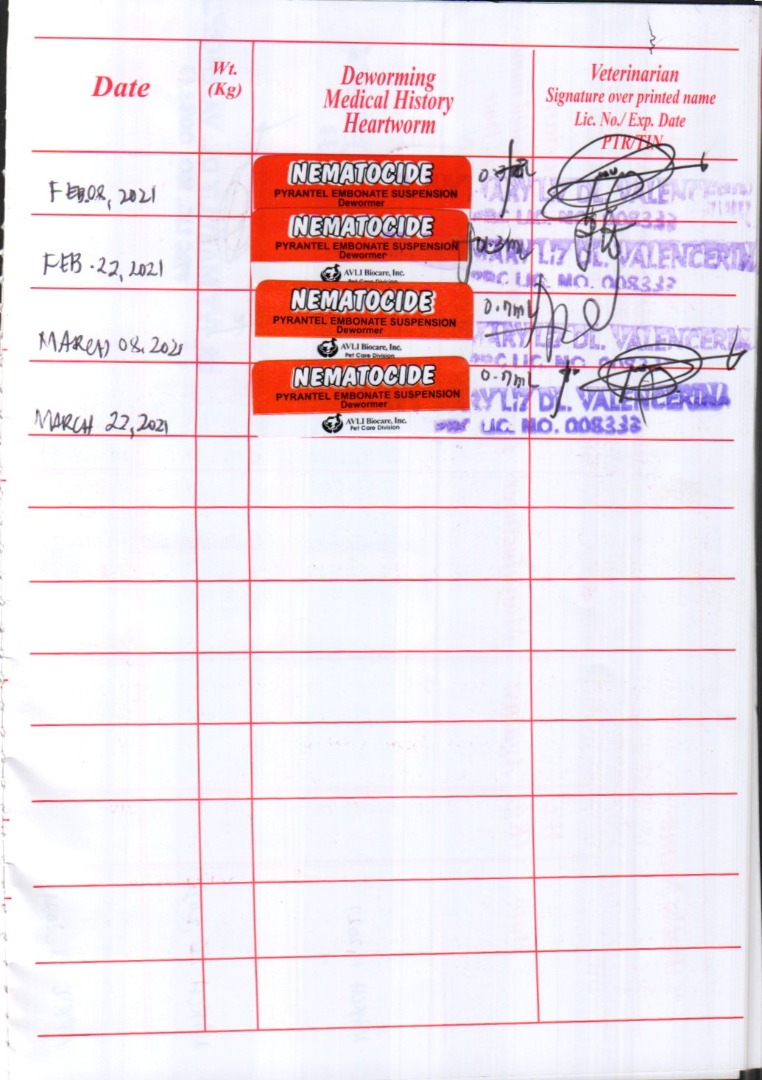 Date
Wt.
(Kg)
Deworming
Medical History
Heartworm
Veterinarian
Signature over printed name
Lic. No./ Exp. Date
PTR/TIN
FEB 08, 2021
NEMATOCIDE
PYRANTEL EMBONATE SUSPENSION
Dewormer
MARY LIZ DL. VALENCERINA
PRC LIC. NO. 008333
FEB. 22, 2021
NEMATOCIDE
PYRANTEL EMBONATE SUSPENSION
Dewormer
AVLI Biocare, Inc.
Pet Care Division
MARY LIZ DL. VALENCERIN
PRC LIC. NO. 008333
MARCH 08, 2021
NEMATOCIDE
PYRANTEL EMBONATE SUSPENSION
Dewormer
AVLI Biocare, Inc.
Pet Care Division
0.7ml
MARY LIZ DL. VALENCERIN
PRC LIC. NO.
MARCH 22, 2021
NEMATOCIDE
PYRANTEL EMBONATE SUSPENSION
Dewormer
AVLI Biocare, Inc.
Pet Care Division
0.7ml
ARY LIZ DL. VALENCERINA
LIC. NO. 008333